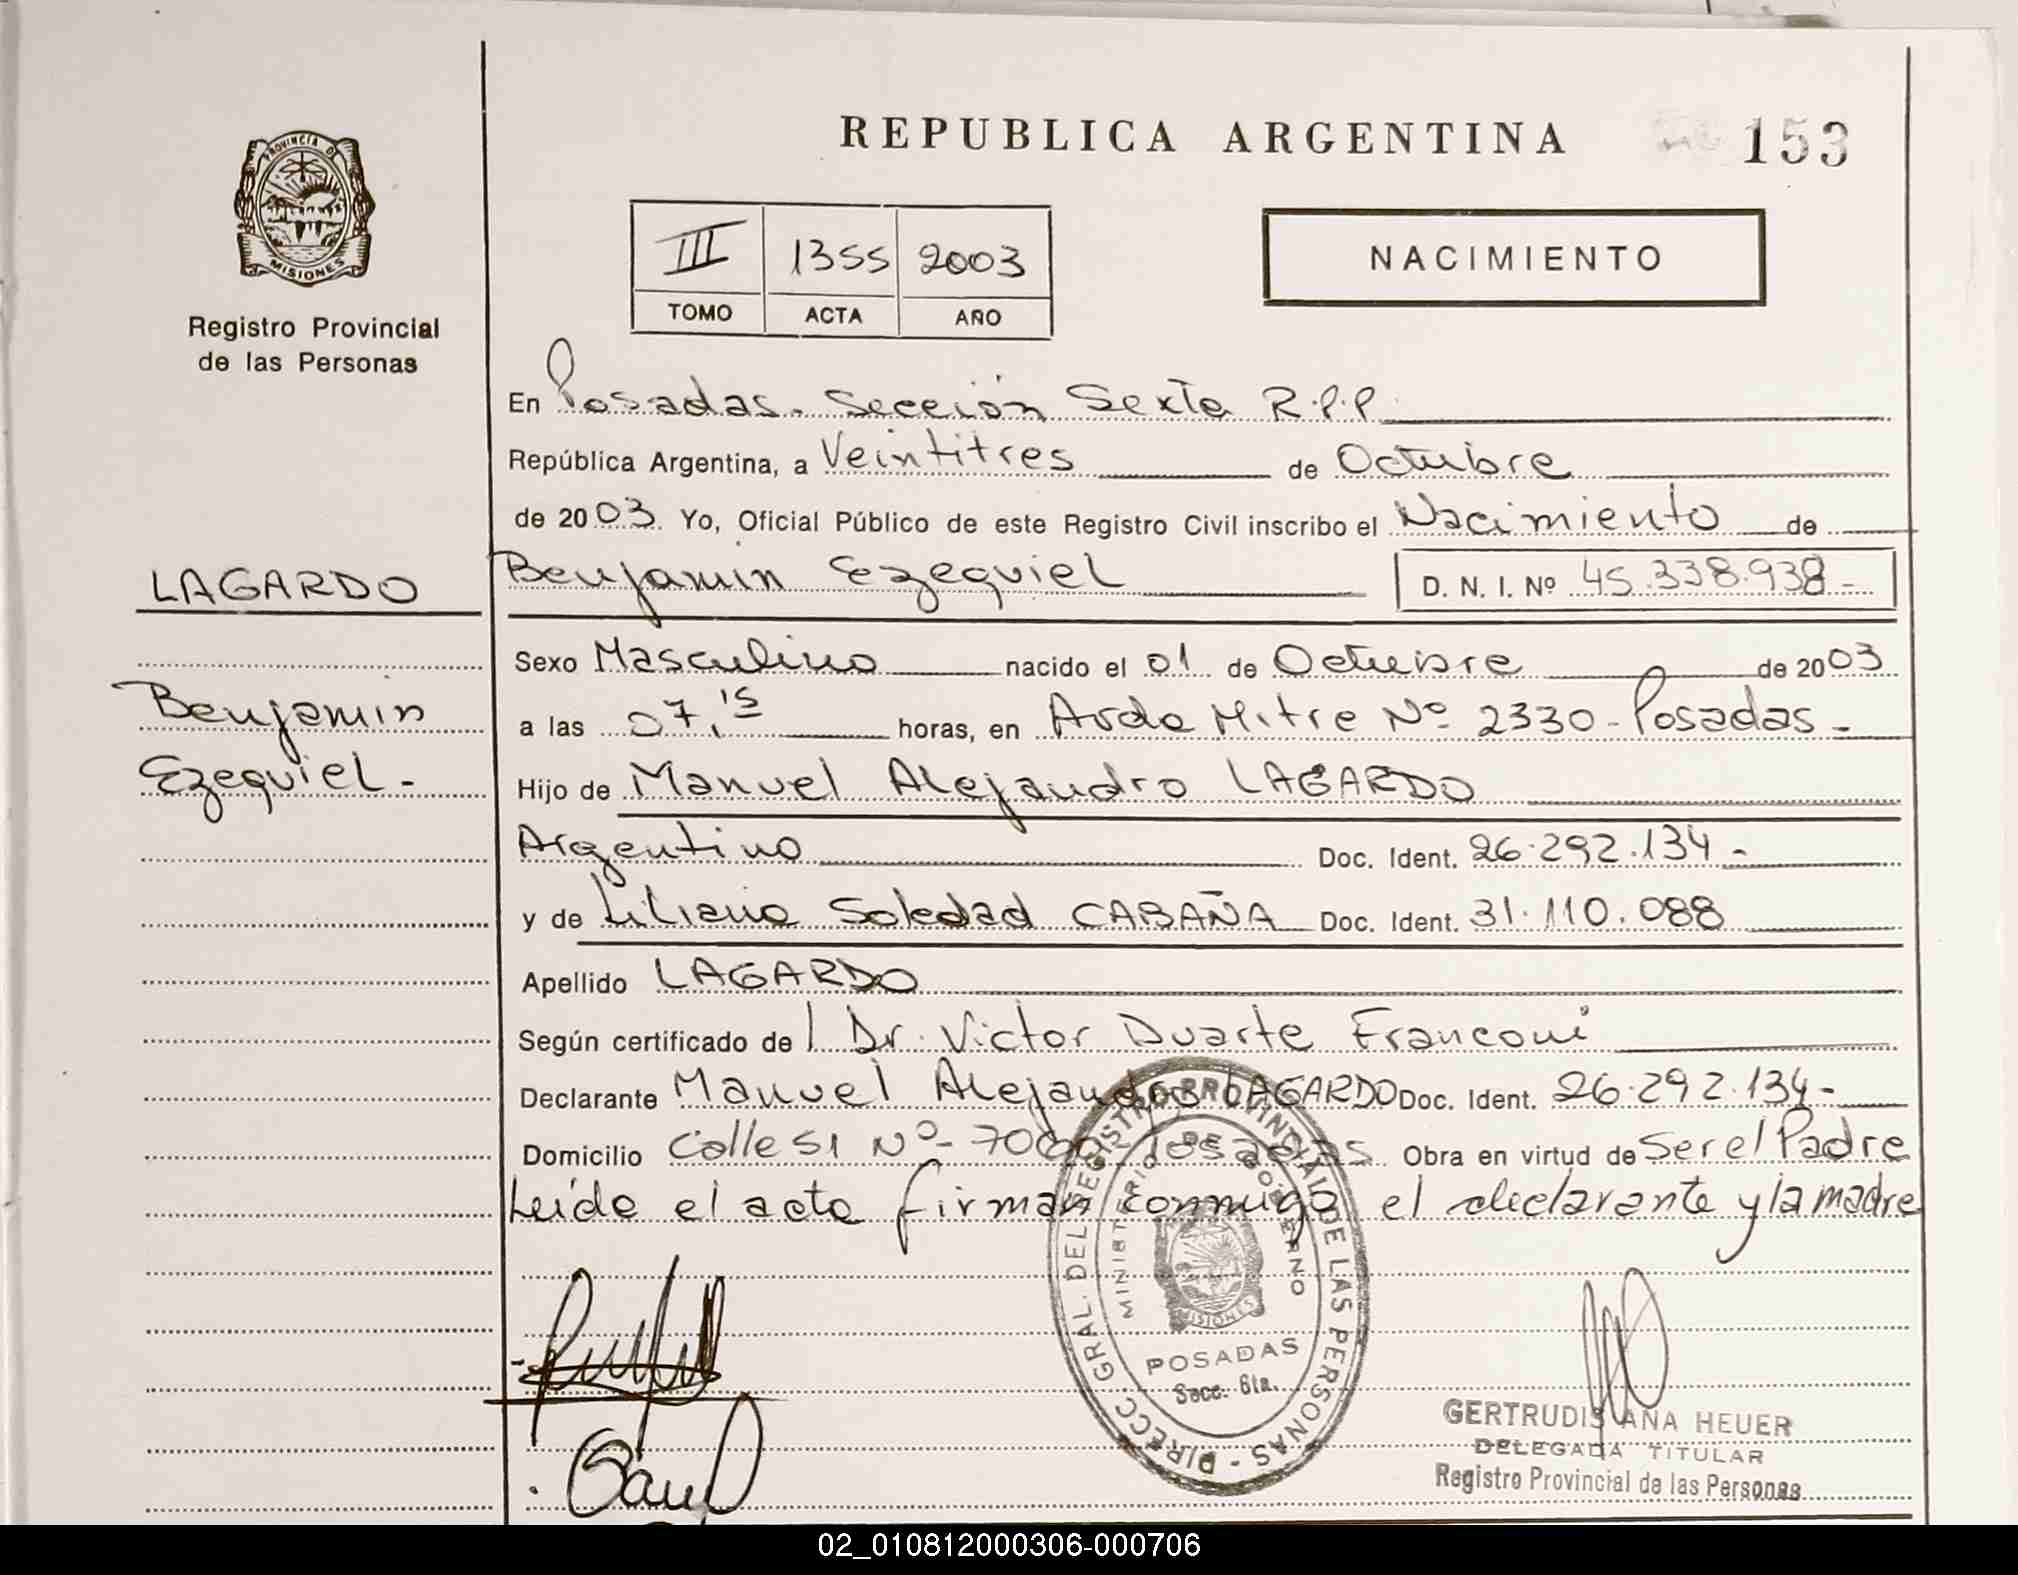 REPUBLICA ARGENTINA 153
PROVINCIA DE
MISIONES
Registro Provincial
de las Personas
III 1355 2003
TOMO ACTA AÑO
NACIMIENTO
En Posadas. Sección Sexta R.P.P.
República Argentina, a Veintitres de Octubre
de 2003 Yo, Oficial Público de este Registro Civil inscribo el Nacimiento de
LAGARDO
Benjamin Ezequiel D. N. I. Nº 45.338.938-
Sexo Masculino nacido el 01 de Octubre de 2003
Benjamin
Ezequiel.-
a las 07,15 horas, en Avda Mitre Nº 2330-Posadas-
Hijo de Manuel Alejandro LAGARDO
Argentino Doc. Ident. 26.292.134-
y de Liliana Soledad CABAÑA Doc. Ident. 31.110.088
Apellido LAGARDO
Según certificado de l Dr. Victor Duarte Franconi
Declarante Manuel Alejandro LAGARDO Doc. Ident. 26.292.134-
Domicilio Calle 51 Nº- Posadas. Obra en virtud de Ser el Padre
Leída el acta firman conmigo el declarante y la madre
DIRECC. GRAL. DEL REGISTRO PROVINCIAL DE LAS PERSONAS -
MINISTERIO DE GOBIERNO
MISIONES
POSADAS
Secc. 6ta.
GERTRUDIS ANA HEUER
DELEGADA TITULAR
Registro Provincial de las Personas
02_010812000306-000706